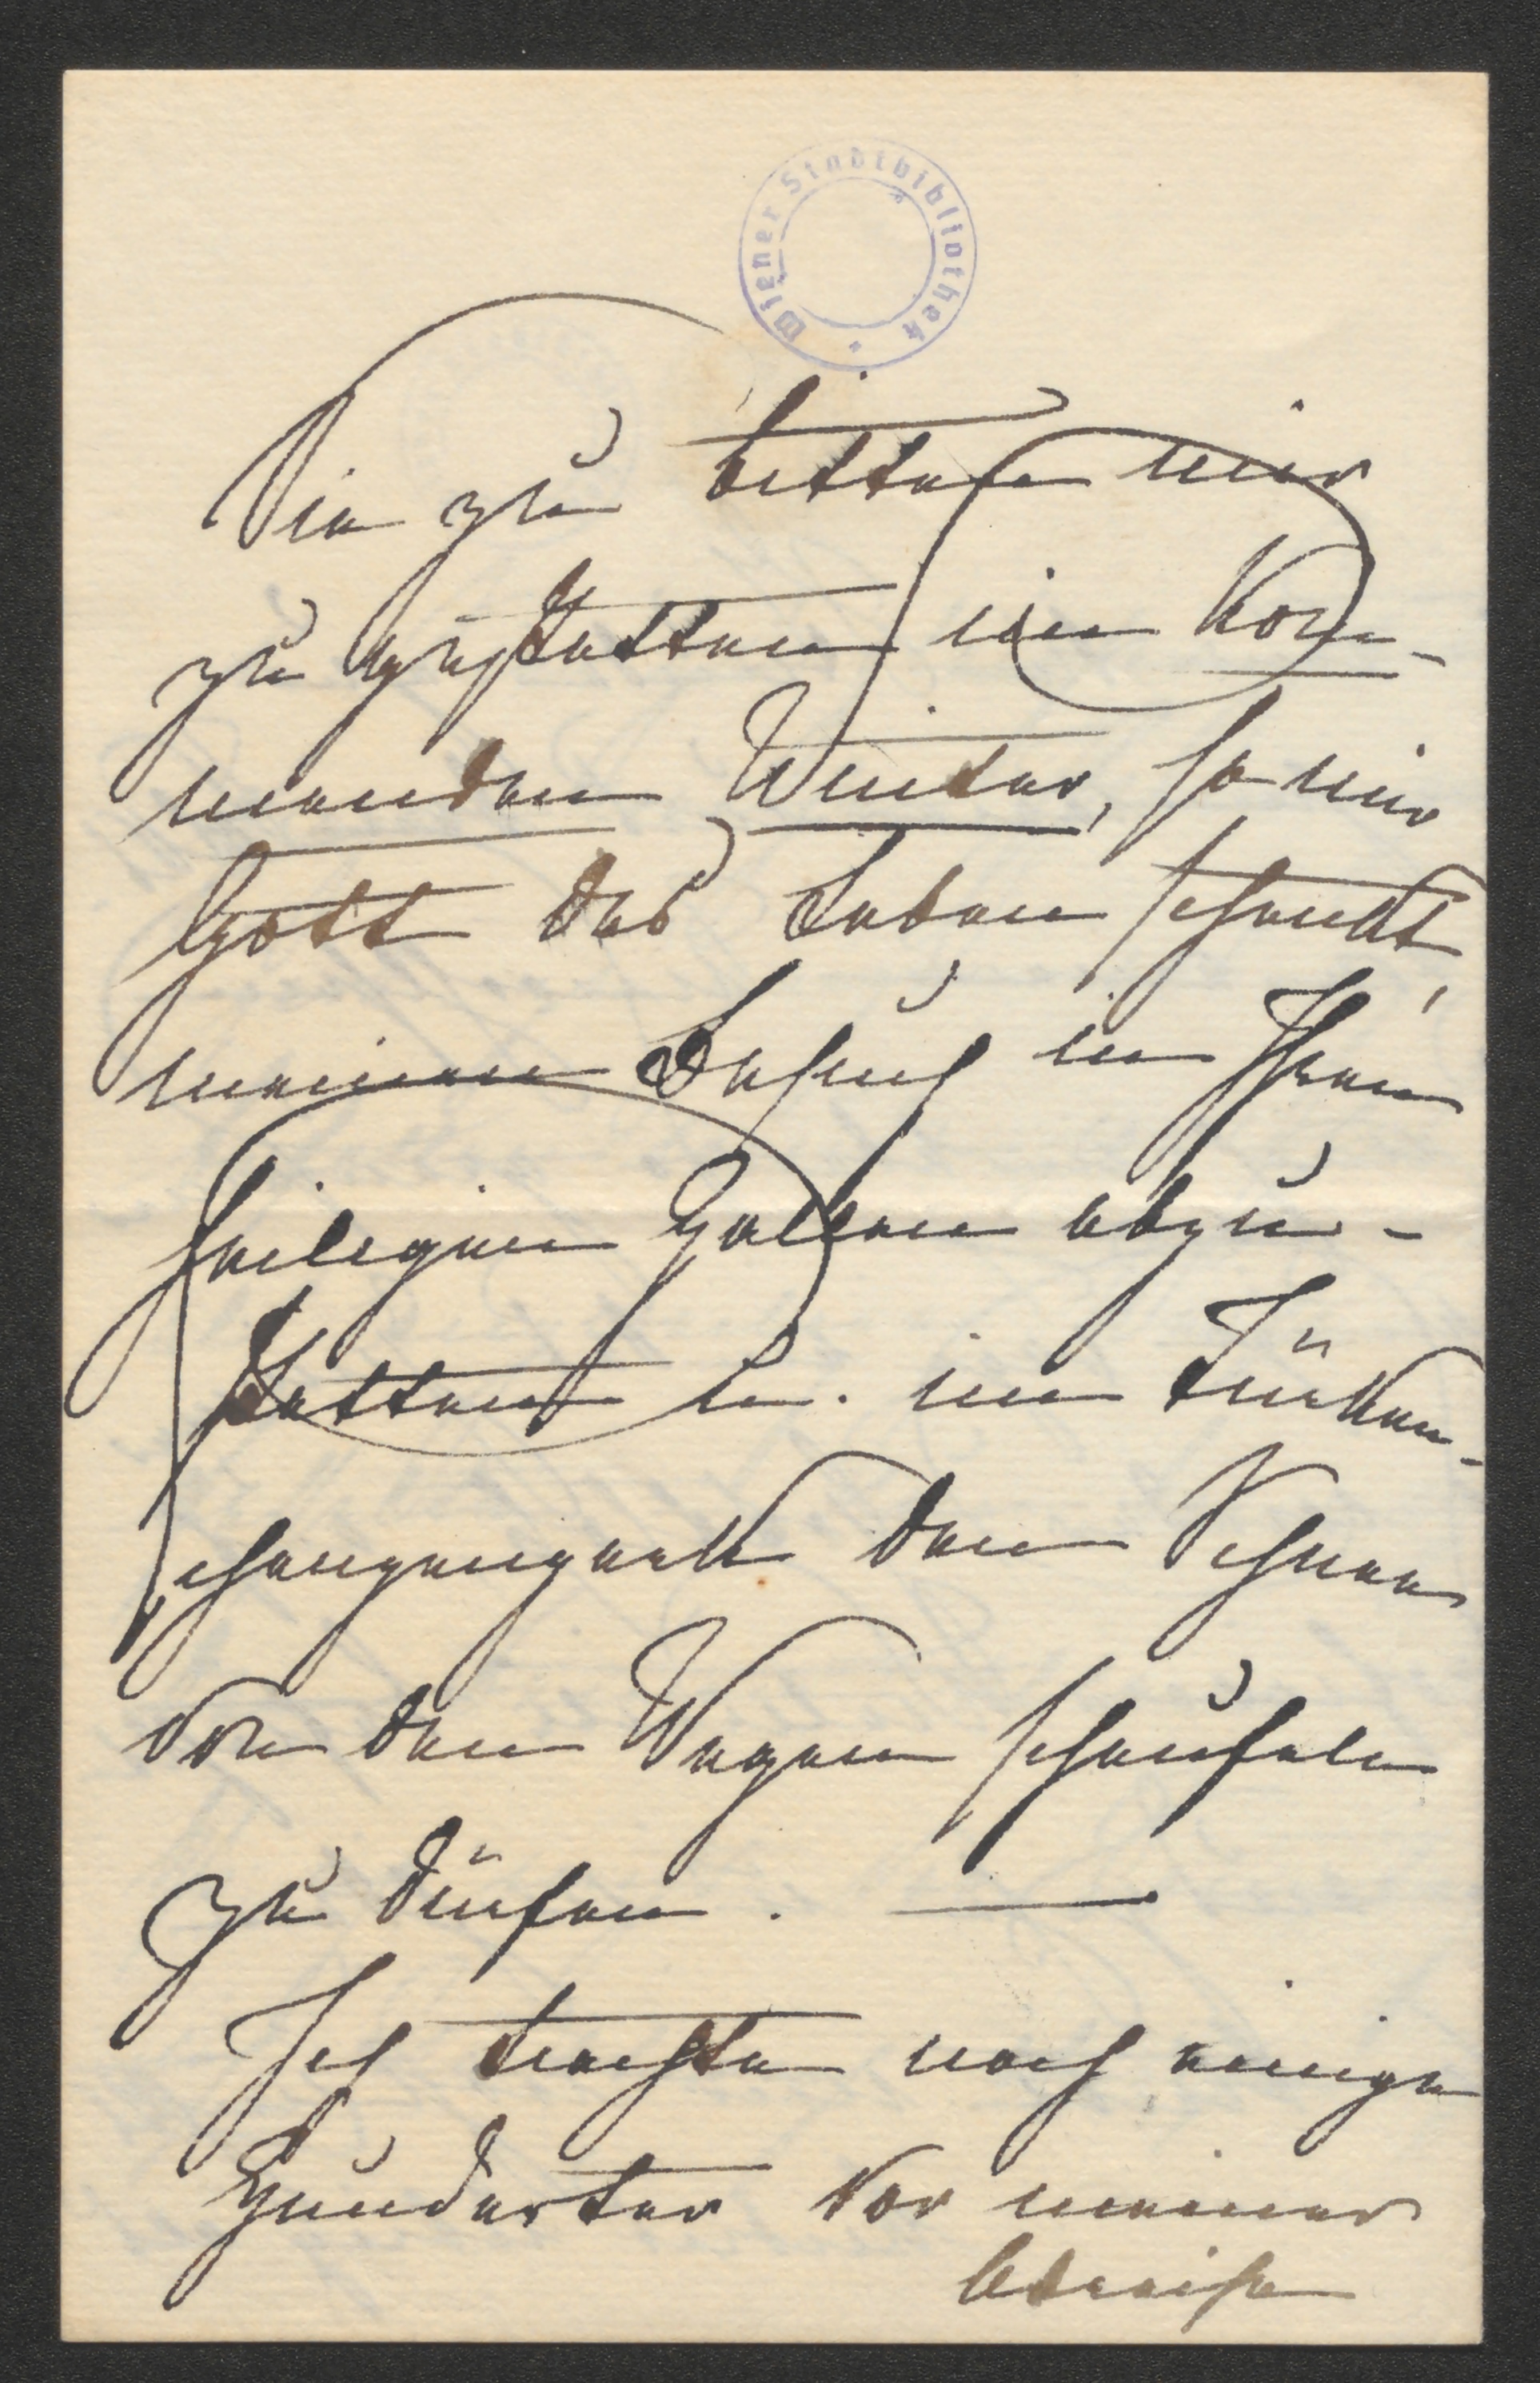 Wiener Stadtbibliothek
Sie zu bitten mir
zu gestatten im kom-
menden Winter, so mir
Gott das Leben schenkt,
meinen Besuch in Ihren
heiligen Hallen abzu-
statten u. im Türken-
schanzpark den Schnee
von den Wegen schaufeln
zu dürfen. —
Ich trachte noch einige
Hunderter vor meiner
Abreise